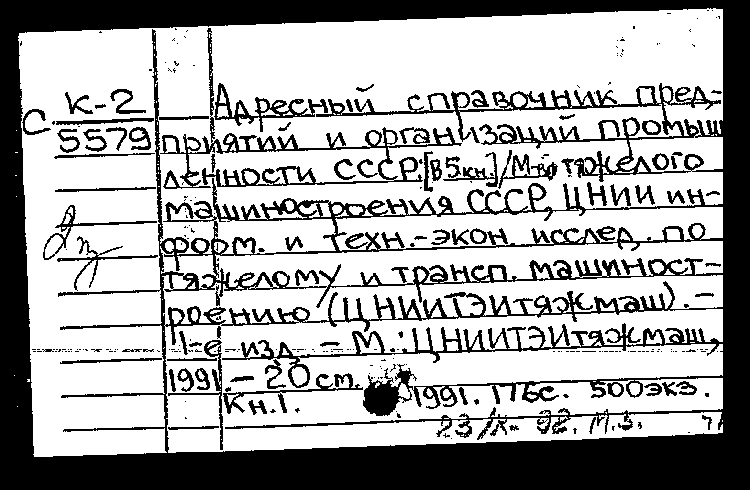 С К-2
5579
2 пз
Адресный справочник пред-
приятий и организаций промыш
ленности СССР:[В 5 кн.]/М-во тяжелого
машиностроения СССР, ЦНИИ ин-
форм. и техн.-экон. исслед. по
тяжелому и трансп. машиност-
роению (ЦНИИТЭИтяжмаш). –
1-е изд. – М.: ЦНИИТЭИтяжмаш,
1991. – 20 см.
Кн.1. 1991. 176с. 500экз.
23/К- 92. М.З.